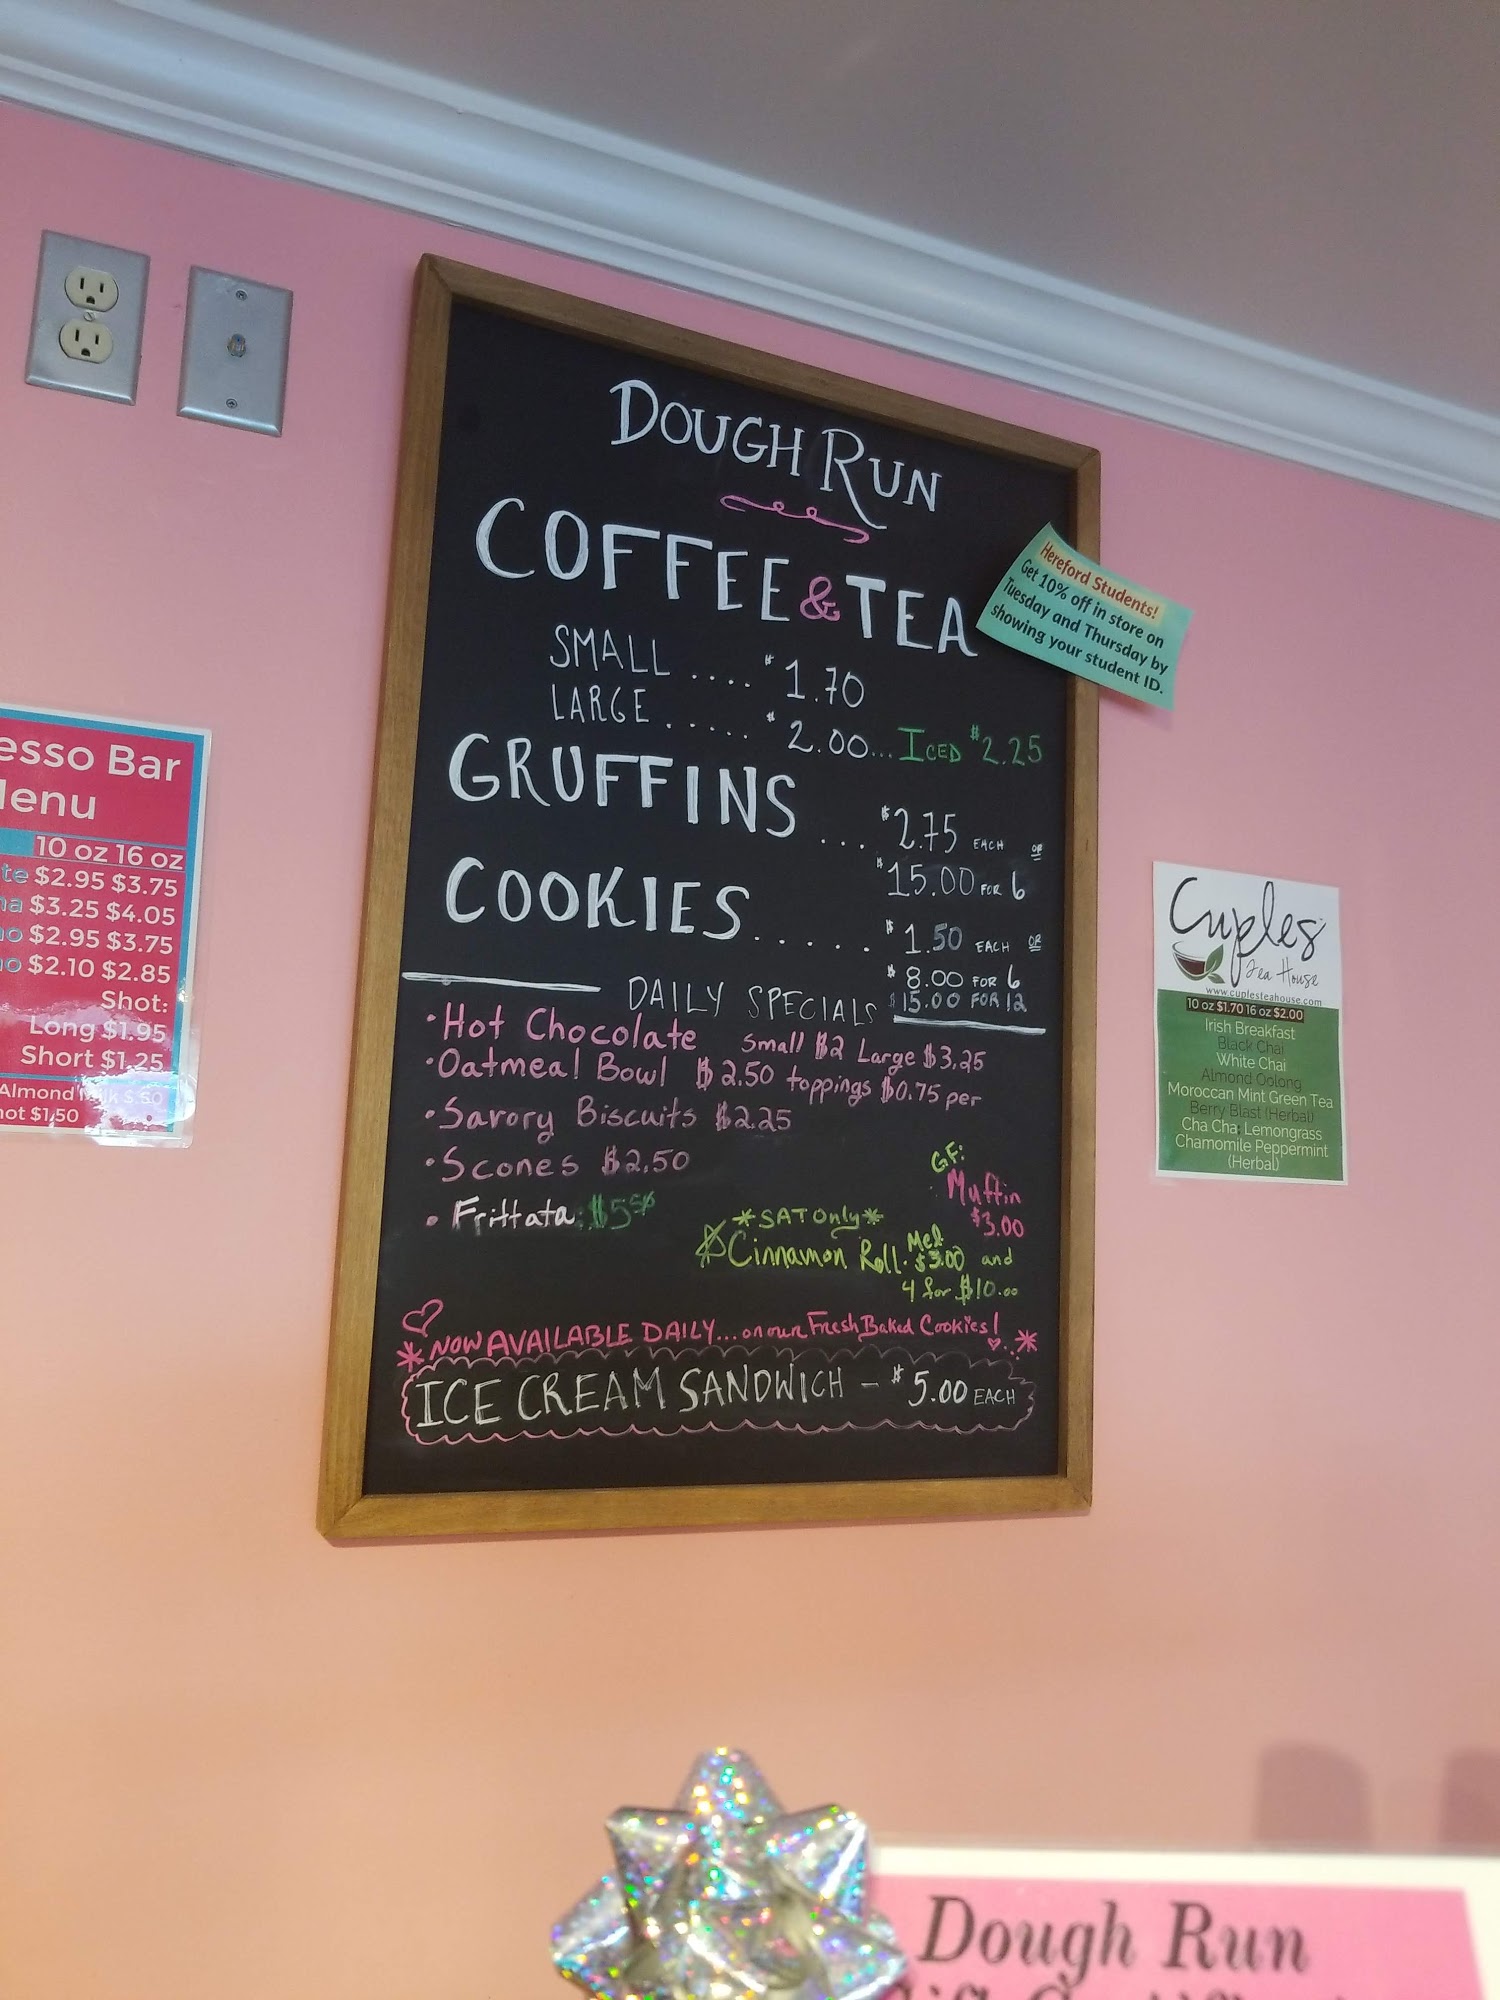 DOUGH RUN
COFFEE & TEA
SMALL .... $1.70
LARGE ..... $2.00... ICED $2.25
GRUFFINS ... $2.75 EACH OR
$15.00 FOR 6
COOKIES..... $1.50 EACH OR
$8.00 FOR 6
$15.00 FOR 12
DAILY SPECIALS
• Hot Chocolate Small $2 Large $3.25
• Oatmeal Bowl $2.50 toppings $0.75 per
• Savory Biscuits $2.25
• Scones $2.50
• Frittata: $5
GF:
Muffin
$3.00
*SAT Only*
Cinnamon Roll. $3.00 and
4 for $10.00
*NOW AVAILABLE DAILY... on our Fresh Baked Cookies!*
ICE CREAM SANDWICH - $5.00 EACH
Hereford Students!
Get 10% off in store on
Tuesday and Thursday by
showing your student ID.
esso Bar
enu
10 oz 16 oz
te $2.95 $3.75
$3.25 $4.05
$2.95 $3.75
$2.10 $2.85
Shot:
Long $1.95
Short $1.25
Almond Milk $.50
hot $1.50
Cuples
Tea House
www.cuplesteahouse.com
10 oz $1.70 16 oz $2.00
Irish Breakfast
Black Chai
White Chai
Almond Oolong
Moroccan Mint Green Tea
Berry Blast (Herbal)
Cha Cha: Lemongrass
Chamomile Peppermint
(Herbal)
Dough Run